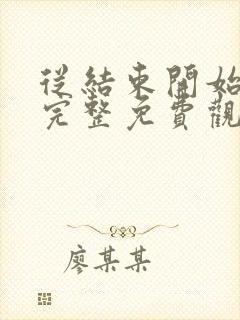 從結束開始
完整免費觀
廖某某